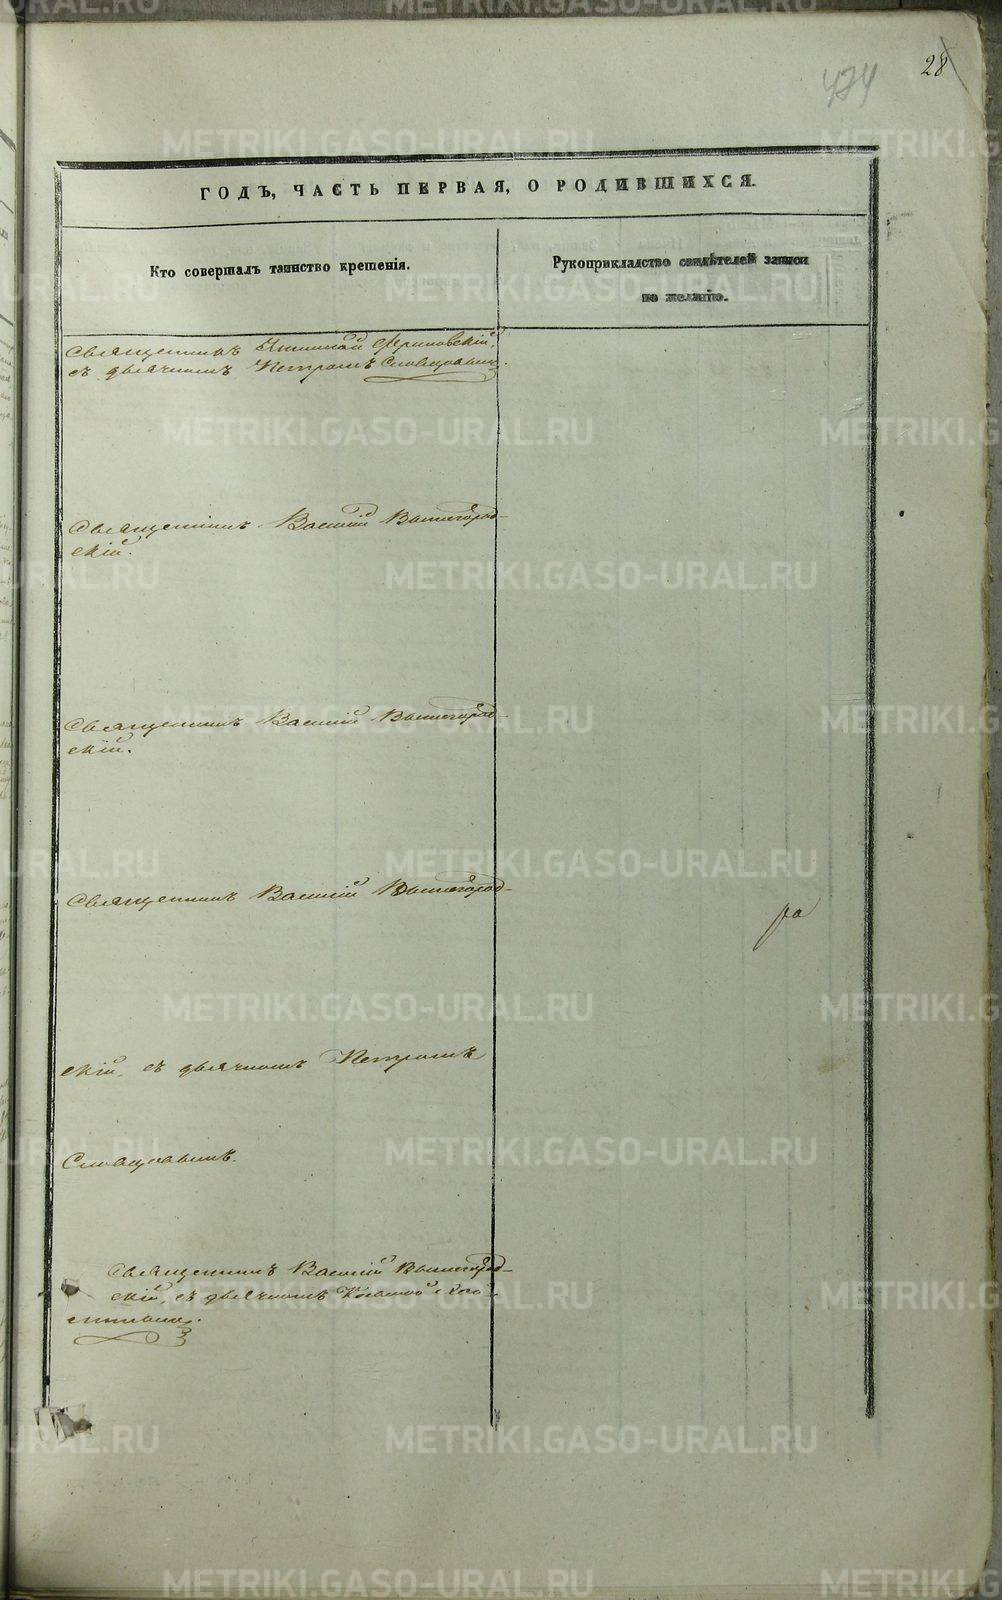 28
474
ГОДЪ, ЧАСТЬ ПЕРВАЯ, О РОДИВШИХСЯ.
Кто совершалъ таинство крещенія.
Рукоприкладство свидѣтелей записи
по желанію.
Священникъ
съ дьячкомъ Петромъ Словцовымъ.
Священникъ Василій Вышегород-
скій.
Священникъ Василій Вышегород-
скій.
Священникъ Василій Вышегород-
ра
скій, съ дьячкомъ Петромъ
Словцовымъ.
Священникъ Василій Вышегород-
скій, съ дьячкомъ Козьмой
METRIKI.GASO-URAL.RU